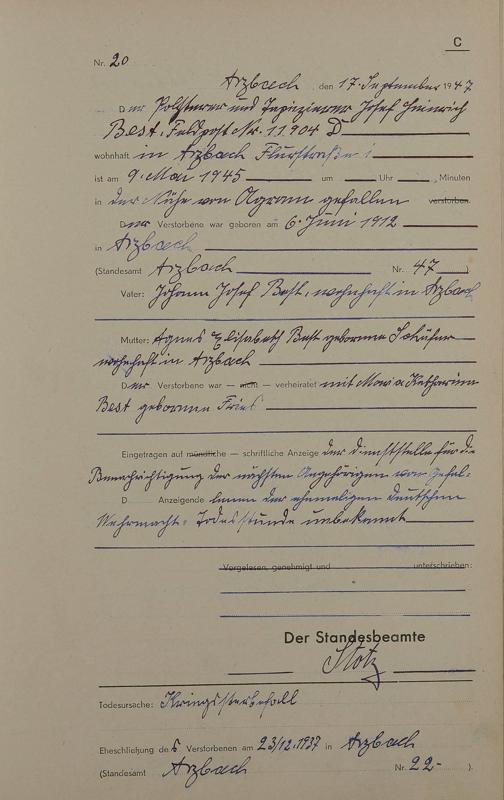 C
Nr. 20
Arzbach, den 17. September 1947
Der Polsterer und Tapezierer Josef Heinrich
Best, Feldpost Nr. 11.904 D
wohnhaft in Arzbach Flurstraße 1
ist am 9. Mai 1945 um Uhr Minuten
in der Nähe von Agram gefallen verstorben.
Der Verstorbene war geboren am 6. Juni 1912
in Arzbach
(Standesamt Arzbach Nr. 47)
Vater: Johann Josef Best, wohnhaft in Arzbach
Mutter: Agnes Elisabeth Best geborene Schäfer
wohnhaft in Arzbach
Der Verstorbene war — nicht — verheiratet mit Maria Katharina
Best geborenen Fries
Eingetragen auf mündliche — schriftliche Anzeige der Dienststelle für die
Benachrichtigung der nächsten Angehörigen von Gefal-
D Anzeigende lenen der ehemaligen Deutschen
Wehrmacht. Todesstunde unbekannt
Vorgelesen, genehmigt und unterschrieben:
Der Standesbeamte
Stotz
Todesursache: Kriegssterbefall
Eheschließung des Verstorbenen am 23/12.1937 in Arzbach
(Standesamt Arzbach Nr. 22-).